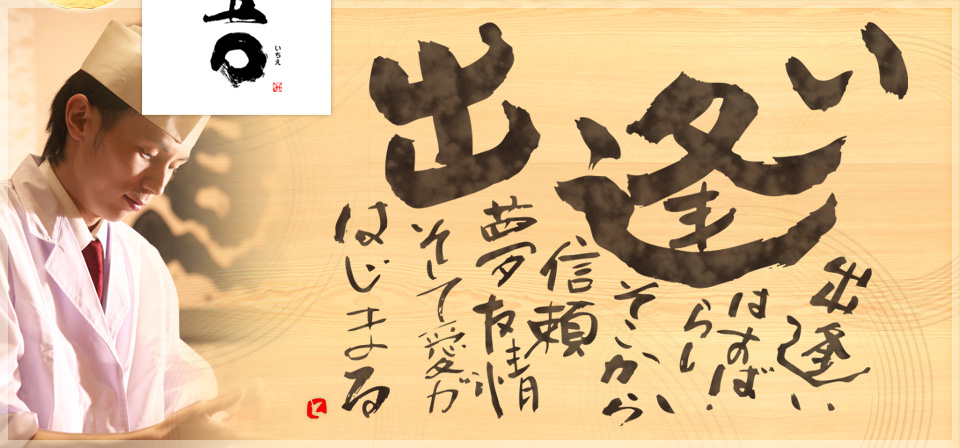 いちえ
出逢い
出逢い
はすば
らしい
そこから
信頼
夢友情
そして愛が
はじまる